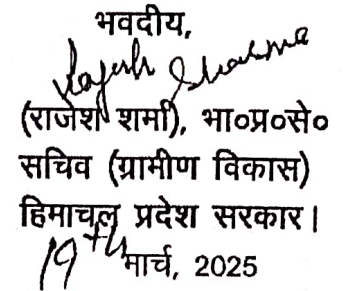 भवदीय,
Rajesh Sharma
(राजेश शर्मा), भा०प्र०से०
सचिव (ग्रामीण विकास)
हिमाचल प्रदेश सरकार।
19th मार्च, 2025